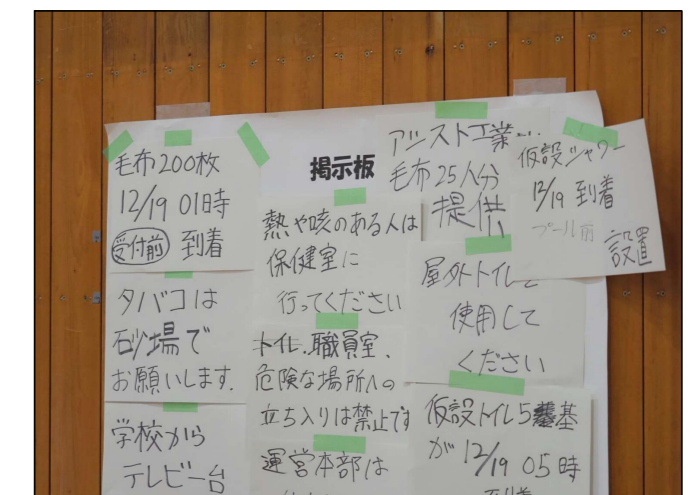 掲示板
毛布200枚
12/19 01時
受付前 到着
タバコは
砂場で
お願いします.
学校から
テレビ一台
熱や咳のある人は
保健室に
行ってください
トイレ.職員室、
危険な場所への
立ち入りは禁止です
運営本部は
アシスト工業
毛布25人分
提供
屋外トイレ
使用して
ください
仮設トイレ5基
が 12/19 05時
到着
仮設シャワー
12/19 到着
プール前
設置